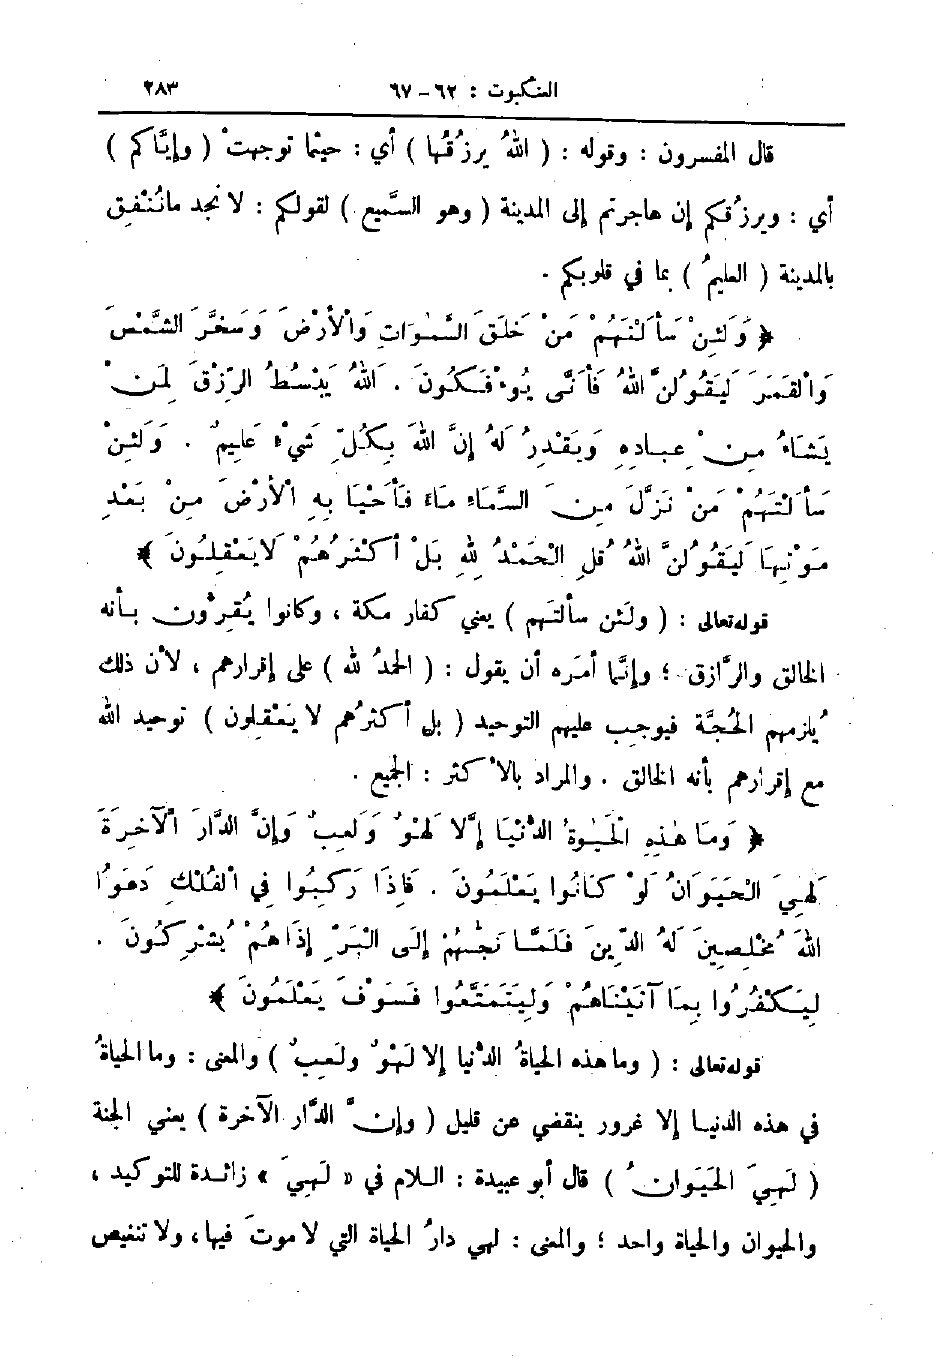 العنكبوت : ٦٢ - ٦٧ ٢٨٣
قال المفسرون : وقوله : ( اللهُ يرزُقُها ) أي : حيثما توجهتْ ( وإيَّاكم )
أي : ويرزُقكم إن هاجرتم إلى المدينة ( وهو السَّميع ) لقولكم : لا نجد مانُنْفِق
بالمدينة ( العليمُ ) بما في قلوبكم .
﴿ وَلَئِنْ سَأَلْتَهُمْ مَنْ خَلَقَ السَّمٰوَاتِ وَالْأَرْضَ وَسَخَّرَ الشَّمْسَ
وَالْقَمَرَ لَيَقُولُنَّ اللهُ فَأَنَّى يُؤْفَكُونَ . اَللهُ يَبْسُطُ الرِّزْقَ لِمَنْ
يَشَاءُ مِنْ عِبَادِهِ وَيَقْدِرُ لَهُ إِنَّ اللهَ بِكُلِّ شَيْءٍ عَلِيمٌ . وَلَئِنْ
سَأَلْتَهُمْ مَنْ نَزَّلَ مِنَ السَّمَاءِ مَاءً فَأَحْيَا بِهِ الْأَرْضَ مِنْ بَعْدِ
مَوْتِهَا لَيَقُولُنَّ اللهُ قُلِ الْحَمْدُ لِلهِ بَلْ أَكْثَرُهُمْ لَايَعْقِلُونَ ﴾
قوله تعالى : ( ولئن سألتهم ) يعني كفار مكة ، وكانوا يُقِرُّون بأنه
الخالق والرَّازق ؛ وإنَّما أمَره أن يقول : ( الحمدُ لله ) على إقرارهم ، لأن ذلك
يُلزمهم الحُجَّة فيوجِب عليهم التوحيد ( بل أكثرُهم لا يَعْقِلون ) توحيد الله
مع إقرارهم بأنه الخالق . والمراد بالأكثر : الجميع .
﴿ وَمَا هٰذِهِ الْحَيٰوةُ الدُّنْيَا إِلَّا لَهْوٌ وَلَعِبٌ وَإِنَّ الدَّارَ الْآخِرَةَ
لَهِيَ الْحَيَوَانُ لَوْ كَانُوا يَعْلَمُونَ . فَإِذَا رَكِبُوا فِي الْفُلْكِ دَعَوُا
اللهَ مُخْلِصِينَ لَهُ الدِّينَ فَلَمَّا نَجّٰهُمْ إِلَى الْبَرِّ إِذَاهُمْ يُشْرِكُونَ .
لِيَكْفُرُوا بِمَا آتَيْنَاهُمْ وَلِيَتَمَتَّعُوا فَسَوْفَ يَعْلَمُونَ ﴾
قوله تعالى : ( وما هذه الحياةُ الدُّنيا إلا لَهْوٌ ولَعِبٌ ) والمعنى : وما الحياةُ
في هذه الدنيا إلا غرور ينقضي عن قليل ( وإنَّ الدَّار الآخرة ) يعني الجنة
( لَهِيَ الحَيَوانُ ) قال أبو عبيدة : اللام في « لَهِيَ » زائدة للتوكيد ،
والحيوان والحياة واحد ؛ والمعنى : لهي دارُ الحياة التي لا موتَ فيها ، ولا تنغيص